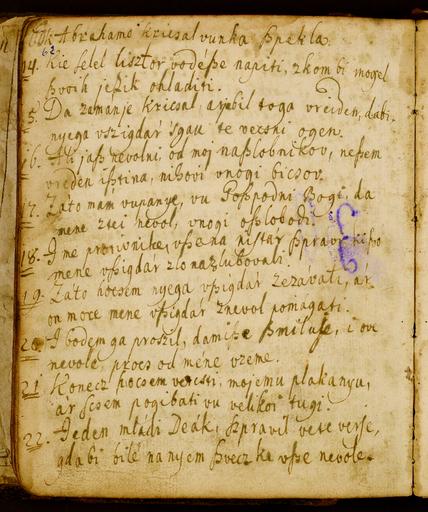 Abrahame kricsal vunka ßpekla.
62
14. Kie felel lisztor vodéße napiti, z kom bi mogel
ßvoih jeßik ohladiti.
15. Da zamanje kricsal, a je bil toga vreiden, da bi
nyega vszigdár sgau te vecsni ogen.
16. Ali jaß nevolni od moj naßlobnikov, neßem
vreden ißtina, nihovi vnogi bicsov.
17. Zato mam vupanye, vu Goßpodni Bogi, da
mene z tei nevol, vnogi oßlobodi.
18. I me protivnike vße na nistár ßpravi, ki ßo
mene vßigdár zlo nazlubovali.
19. Zato hocsem nyega vßigdár zezavati, ár
on moce mene vßigdár z nevol pomágati.
20. I bodem ga proszil, da mi ße ßmiluje, i ove
nevole, procs od mene vzeme.
21. Konecz hocsem vcsisti, mojemu plakanyu,
ár scsem pogibati vu velikoi tugi.
22. Jeden mladi Deák, ßpravil vete verße,
gda bi bilé na nyem ßvecz ke vße nevole.